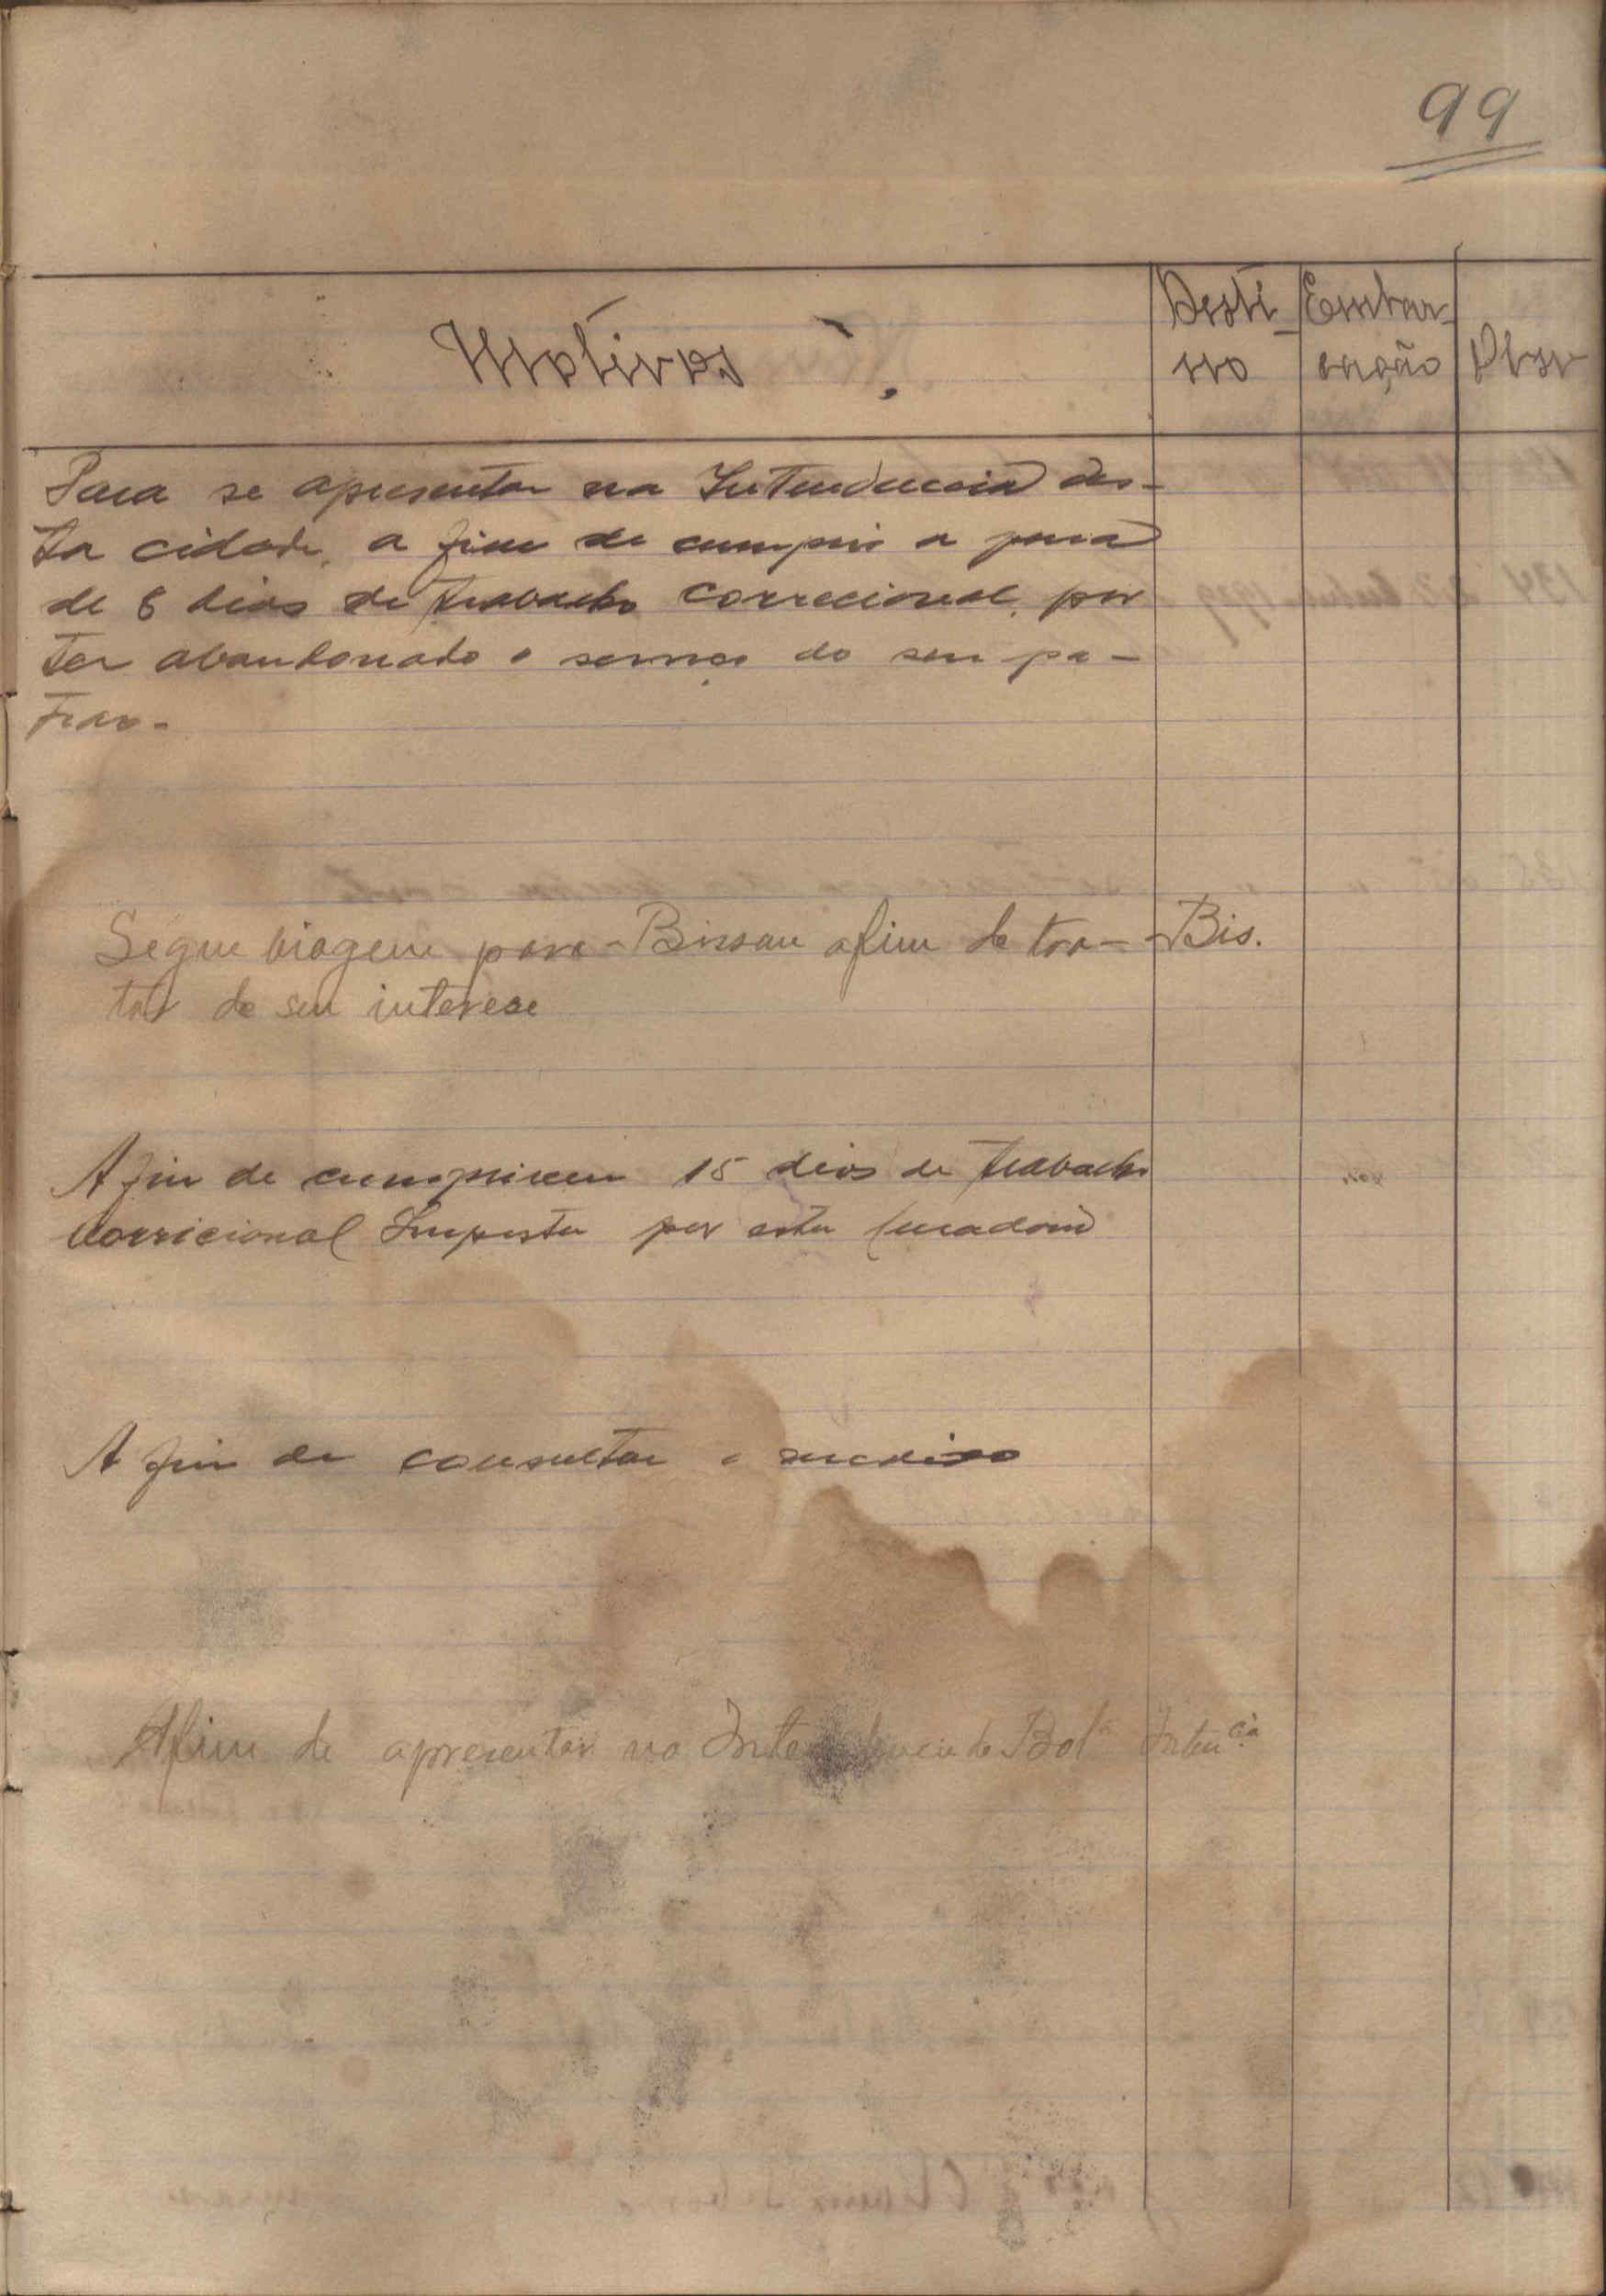 99
Motivos
Desti-
no
Embar-
cação
Obsr
Para se apresentar na Intendencia des-
ta cidade, a fim de cumprir a pena
de 8 dias de trabacho correcional, por
ter abandonado o serviço do seu pa-
trao-
Segue viagem para Bissau afim de tra-
Bis.
tar de seu interese
A fim de cumprirem 15 dias de trabacho
Corricional Imposta por esta Curadoria
A fim de consultar o medico
Afim de apresentar na Intendencia de Bolª
Intenciª